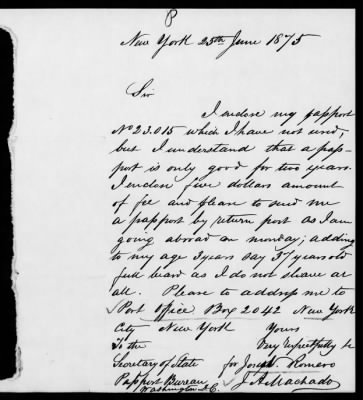 P
New York 25th June 1875
Sir
I enclose my pasport
No 23.015 which I have not used,
but I understand that a pas-
port is only good for two years.
I enclose five dollars amount
of fee and please to send me
a pasport by return post as I am
going abroad on monday; adding
to my age 3 years say 37 years old
full beard as I do not shave at
all. Please to address me to
Post Office Box 2042 New York
City New York Yours
To the Very respectfully &c
Secretary of State for Joseph Romero
Pasport Bureau J A Machado
Washington D.C.